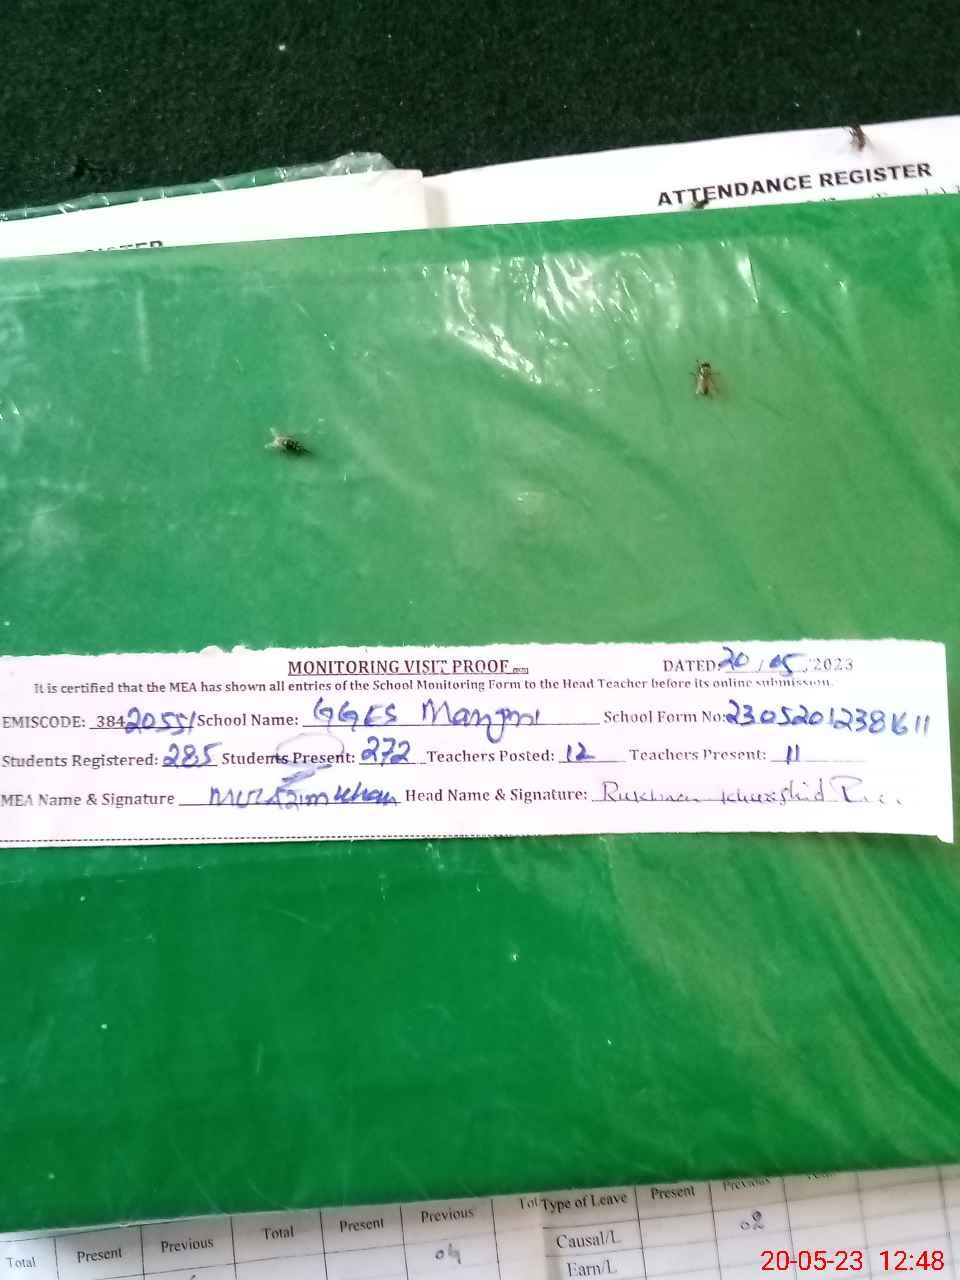 ATTENDANCE REGISTER
MONITORING VISIT PROOF
DATED: 20 / 05 / 2023
It is certified that the MEA has shown all entries of the School Monitoring Form to the Head Teacher before its online submission.
EMISCODE: 38420551 School Name: GGES School Form No: 23052012381611
Students Registered: 285 Students Present: 272 Teachers Posted: 12 Teachers Present: 11
MEA Name & Signature Khan Head Name & Signature:
Total Present Previous Total Present Previous
04
Type of Leave Present Previous
Causal/L 02
Earn/L
20-05-23 12:48